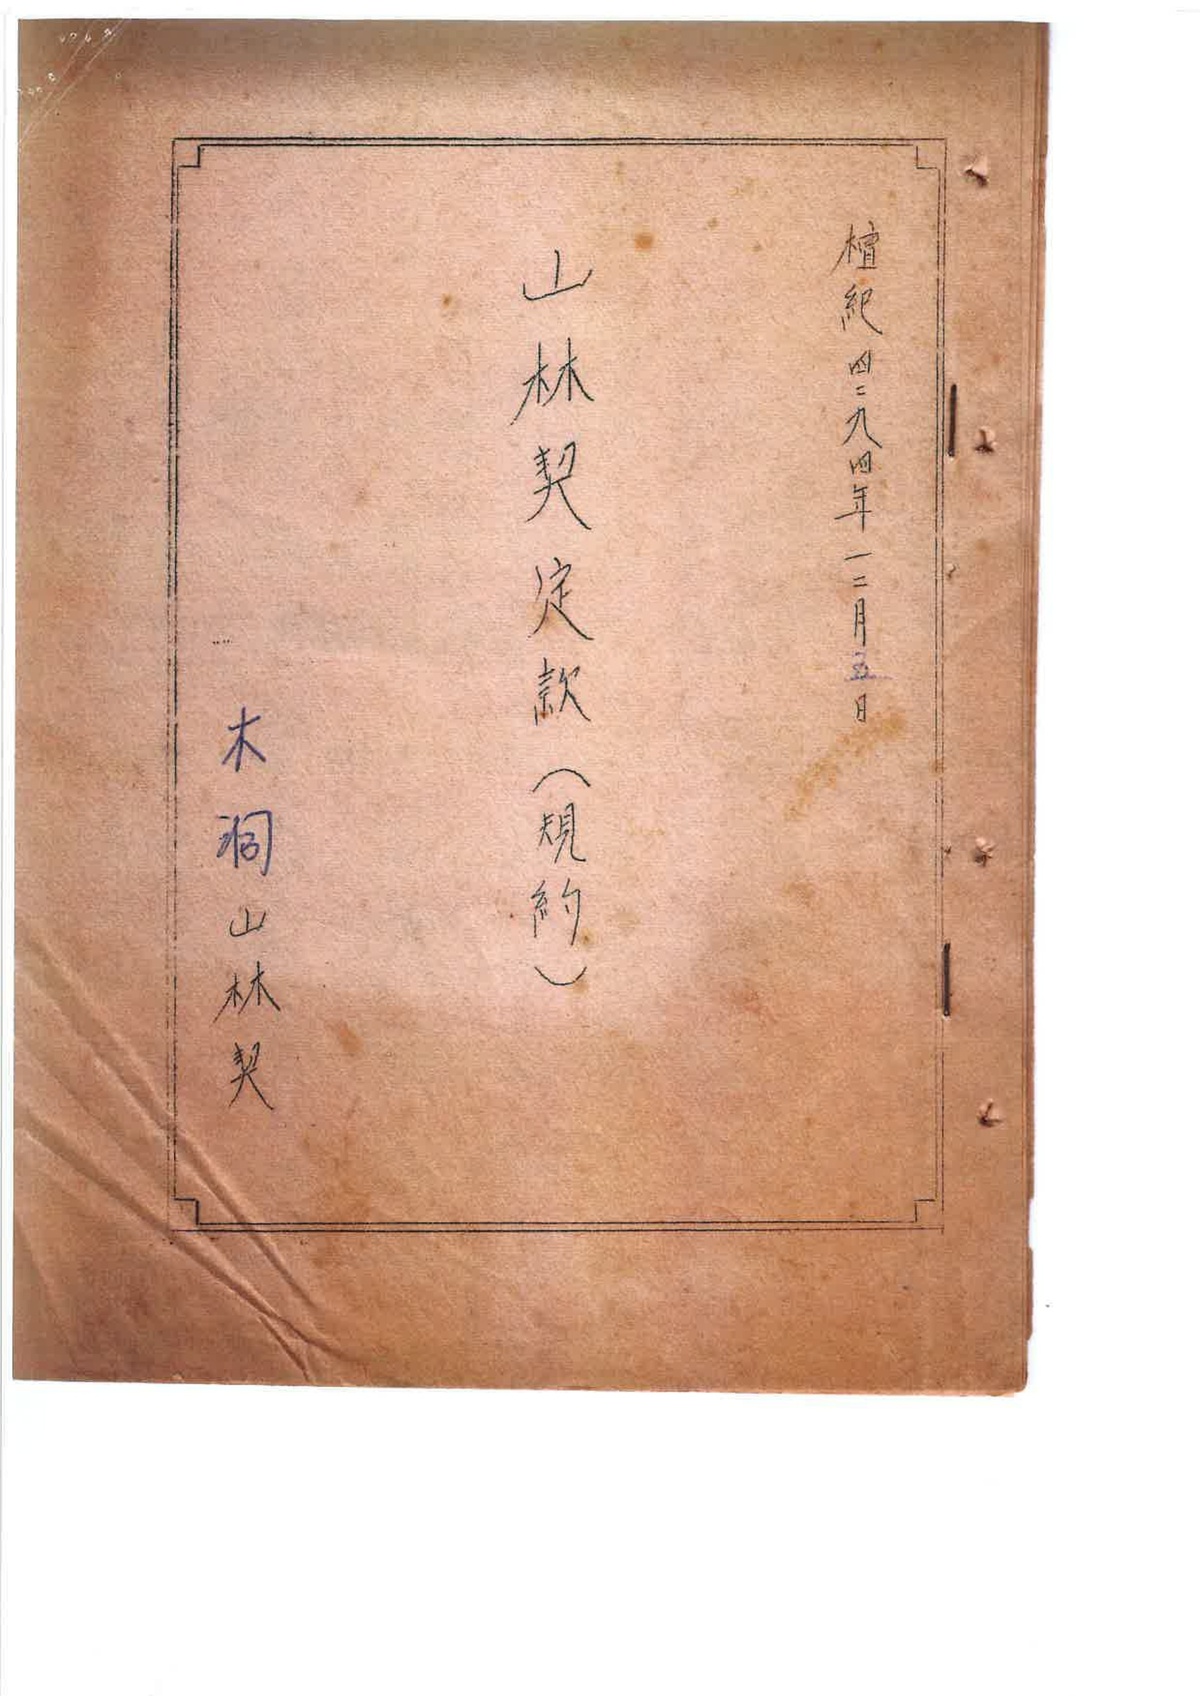 檀紀四二九四年一二月五日
山林契定款（規約）
木洞山林契